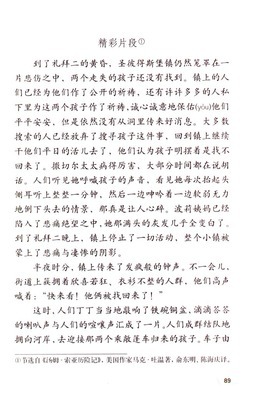 精彩片段①
到了礼拜二的黄昏，圣彼得斯堡镇仍然笼罩在一
片悲伤之中，两个走失的孩子还没有找到。镇上的人
们已经为他们作了公开的祈祷，还有许许多多的人私
下里为这两个孩子作了祈祷，诚心诚意地保佑(yòu)他们
平平安安，但是依然没有从洞里传来好消息。大多数
搜索的人已经放弃了搜寻这件事，回到镇上继续
干他们平日的活儿去了，他们认为孩子明摆着是找不
回来了。撒切尔太太病得厉害，大部分时间都在说胡
话。人们听见她呼喊孩子的声音，看见她每次抬起头
侧耳听上整整一分钟，然后一边呻吟着一边软弱无力
地倒下头去的情景，那真是让人心碎。波莉姨妈已经
陷入了悲痛绝望之中，她那满头的灰发几乎全变白了。
到了礼拜二晚上，镇上停止了一切活动，整个小镇被
蒙上了悲痛与凄伤的阴影。
半夜时分，镇上传来了发疯般的钟声。不一会儿，
街道上簇拥着欣喜若狂、衣衫不整的人群，他们高声
喊着：“快来看！他俩被找回来了！”
这时，人们丁丁当当地敲响了铁碗铜盆，滴滴答答
的喇叭声与人们的喧嚷声汇成了一片。人们成群结队地
拥向河岸，去迎接那两个乘敞篷车归来的孩子。车子由
①节选自《汤姆·索亚历险记》，美国作家马克·吐温著，俞东明、陈海庆译。
89